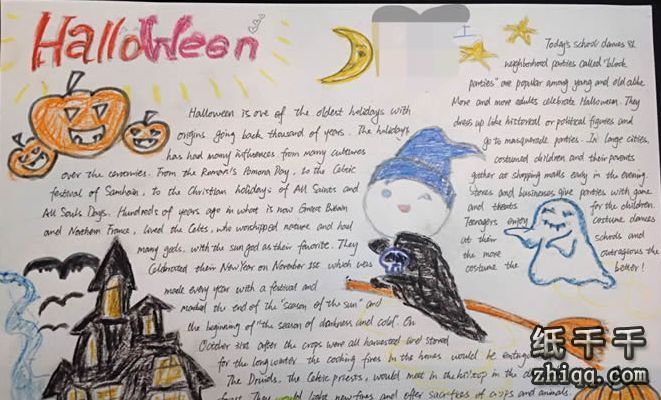 Halloween
Halloween is one of the oldest holidays with
origins going back thousand of years. The holidays
has had many influences from many cultures
over the centuries. From the Roman's Pomona Day, to the Celtic
festival of Samhain, to the Christian holidays of All Saints and
All Souls Days. Hundreds of years ago in what is now Great Britain
and Northern France, lived the Celts, who worshipped nature and had
many gods, with the sun god as their favorite. They
Celebrated their New Year on November 1st which was
made every year with a festival and
marked the end of the "season of the sun" and
the beginning of "the season of darkness and cold". On
October 31st after the crops were all harvested and stored
for the long winter the cooking fires in the homes would be
The Druids, the Celtic priests, would meet in the hilltop in the
They would light new fires and offer sacrifices of crops and animals.
Today's school dances &
neighborhood parties called "block
parties" are popular among young and old alike.
More and more adults celebrate Halloween. They
dress up like historical or political figures and
go to masquerade parties. In large cities,
costumed children and their parents
gather at shopping malls early in the evening.
Stores and businesses give parties with games
and threats for the children.
Teenagers enjoy costume dances
at their schools and
the more outrageous the
costume the better!
纸干干
zhiqq.com